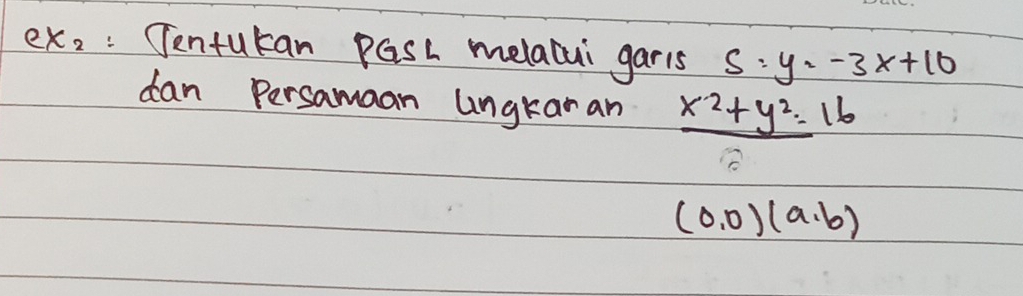 ex₂ : Tentukan PGSL melalui garis s : y = -3x+10
dan Persamaan lingkaran x²+y² = 16
(0,0)(a.b)